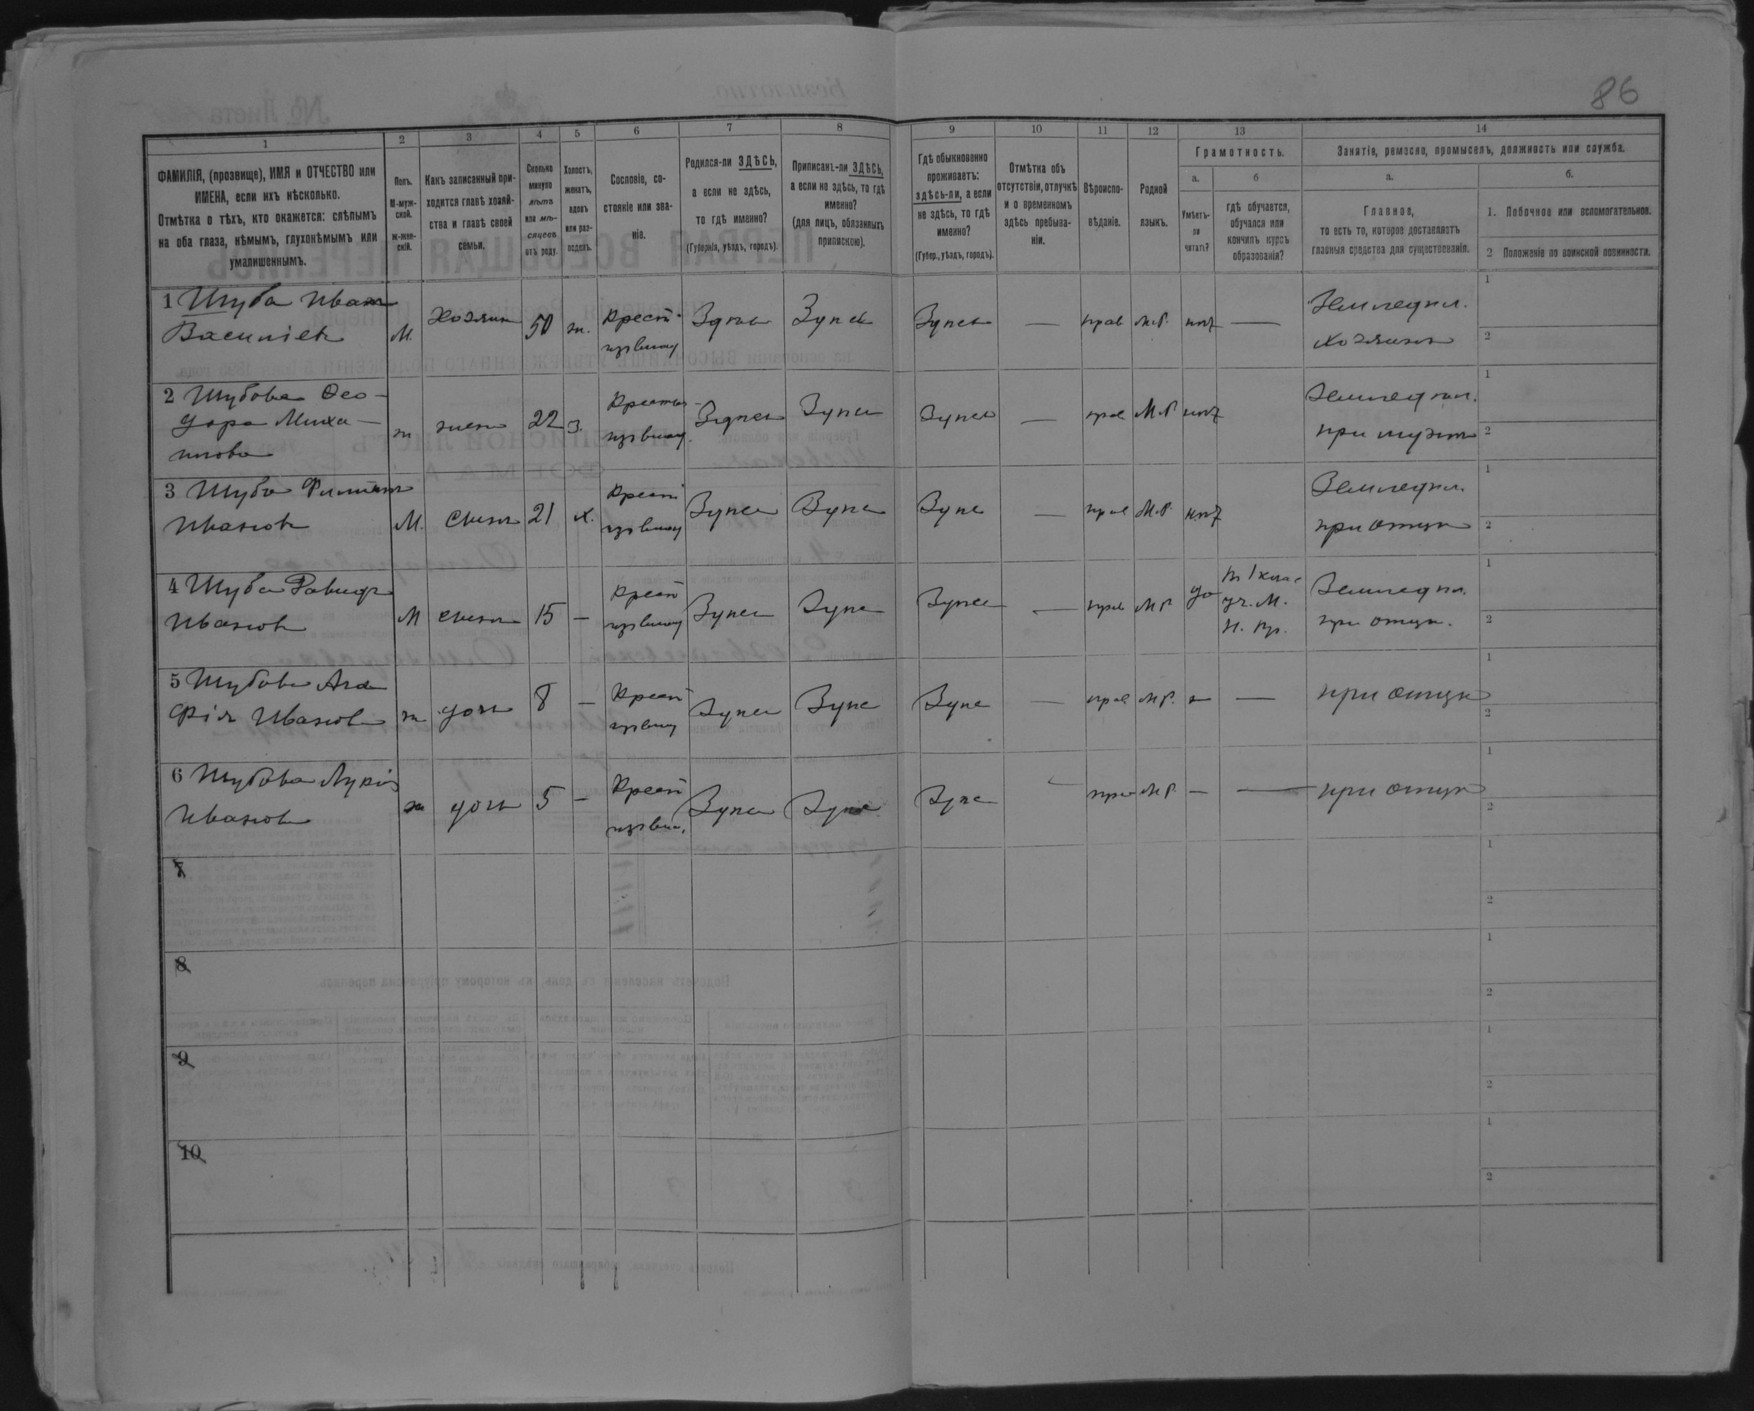 86
1 2 3 4 5 6 7 8 9 10 11 12 13 14
ФАМИЛІЯ, (прозвище), ИМЯ и ОТЧЕСТВО или
ИМЕНА, если ихъ нѣсколько.
Отмѣтка о тѣхъ, кто окажется: слѣпымъ
на оба глаза, нѣмымъ, глухонѣмымъ или
умалишеннымъ.
Полъ.
М-муж-
ской.
ж-жен-
скій.
Какъ записанный при-
ходится главѣ хозяй-
ства и главѣ своей
семьи.
Сколько
минуло
лѣтъ
или мѣ-
сяцевъ
отъ роду.
Холостъ,
женатъ,
вдовъ
или раз-
веденъ.
Сословіе, со-
стояніе или зва-
ніе.
Родился-ли ЗДѢСЬ,
а если не здѣсь,
то гдѣ именно?
(Губернія, уѣздъ, городъ).
Приписанъ-ли ЗДѢСЬ,
а если не здѣсь, то гдѣ
именно?
(для лицъ, обязанныхъ
припискою).
Гдѣ обыкновенно
проживаетъ:
здѣсь-ли, а если
не здѣсь, то гдѣ
именно?
(Губер., уѣздъ, городъ).
Отмѣтка объ
отсутствіи, отлучкѣ
и о временномъ
здѣсь пребыва-
ніи.
Вѣроиспо-
вѣданіе.
Родной
языкъ.
Грамотность.
а.
Умѣетъ-
ли
читать?
б
гдѣ обучается,
обучался или
кончилъ курсъ
образованія?
Занятія, ремесло, промыселъ, должность или служба.
а.
Главное,
то есть то, которое доставляетъ
главныя средства для существованія.
б.
1. Побочное или вспомогательное.
2 Положеніе по воинской повинности.
1 Шуба Иванъ
Васильев
М. Хозяин 50 ж. Крест. Здѣсь Здѣсь Здѣсь — прав М.Р. нѣт —
Земледѣл.
хозяинъ
2 Шубова Фео-
дора Миха-
илова
ж жена 22 з. Здѣсь Здѣсь Здѣсь — прав М.Р. нѣт
Земледѣл.
при мужѣ
3 Шуба Филипъ
Иванов
М. сынъ 21 х. Крест Здѣсь Здѣсь Здѣсь — прав М.Р. нѣт
Земледѣл.
при отцѣ
4 Шуба Давидъ
Иванов
М сынъ 15 — Крест Здѣсь Здѣсь Здѣсь — прав М.Р. да
уч. М.
Н. Пр.
Земледѣл.
при отцѣ.
5 Шубова Ага
фія Иванов
ж дочь 8 — Крест Здѣсь Здѣсь Здѣсь — прав М.Р. — —
при отцѣ
6 Шубова Лукія
Иванов
ж дочь 5 — Крест Здѣсь Здѣсь Здѣсь — прав М.Р. — —
при отцѣ
7
8
9
10